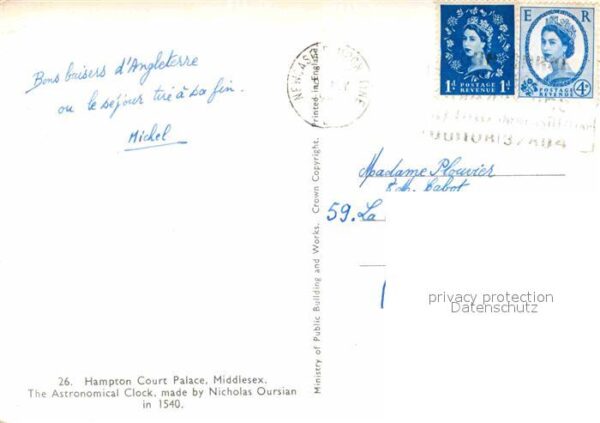 Bons baisers d'Angleterre
ou le séjour tire à sa fin.
Michel
26. Hampton Court Palace, Middlesex.
The Astronomical Clock, made by Nicholas Oursian
in 1540.
Ministry of Public Building and Works. Crown Copyright. Printed in England.
E R
1d POSTAGE REVENUE 1d
POSTAGE REVENUE 4d
Madame Plouvier
Cabot
59. La
privacy protection
Datenschutz